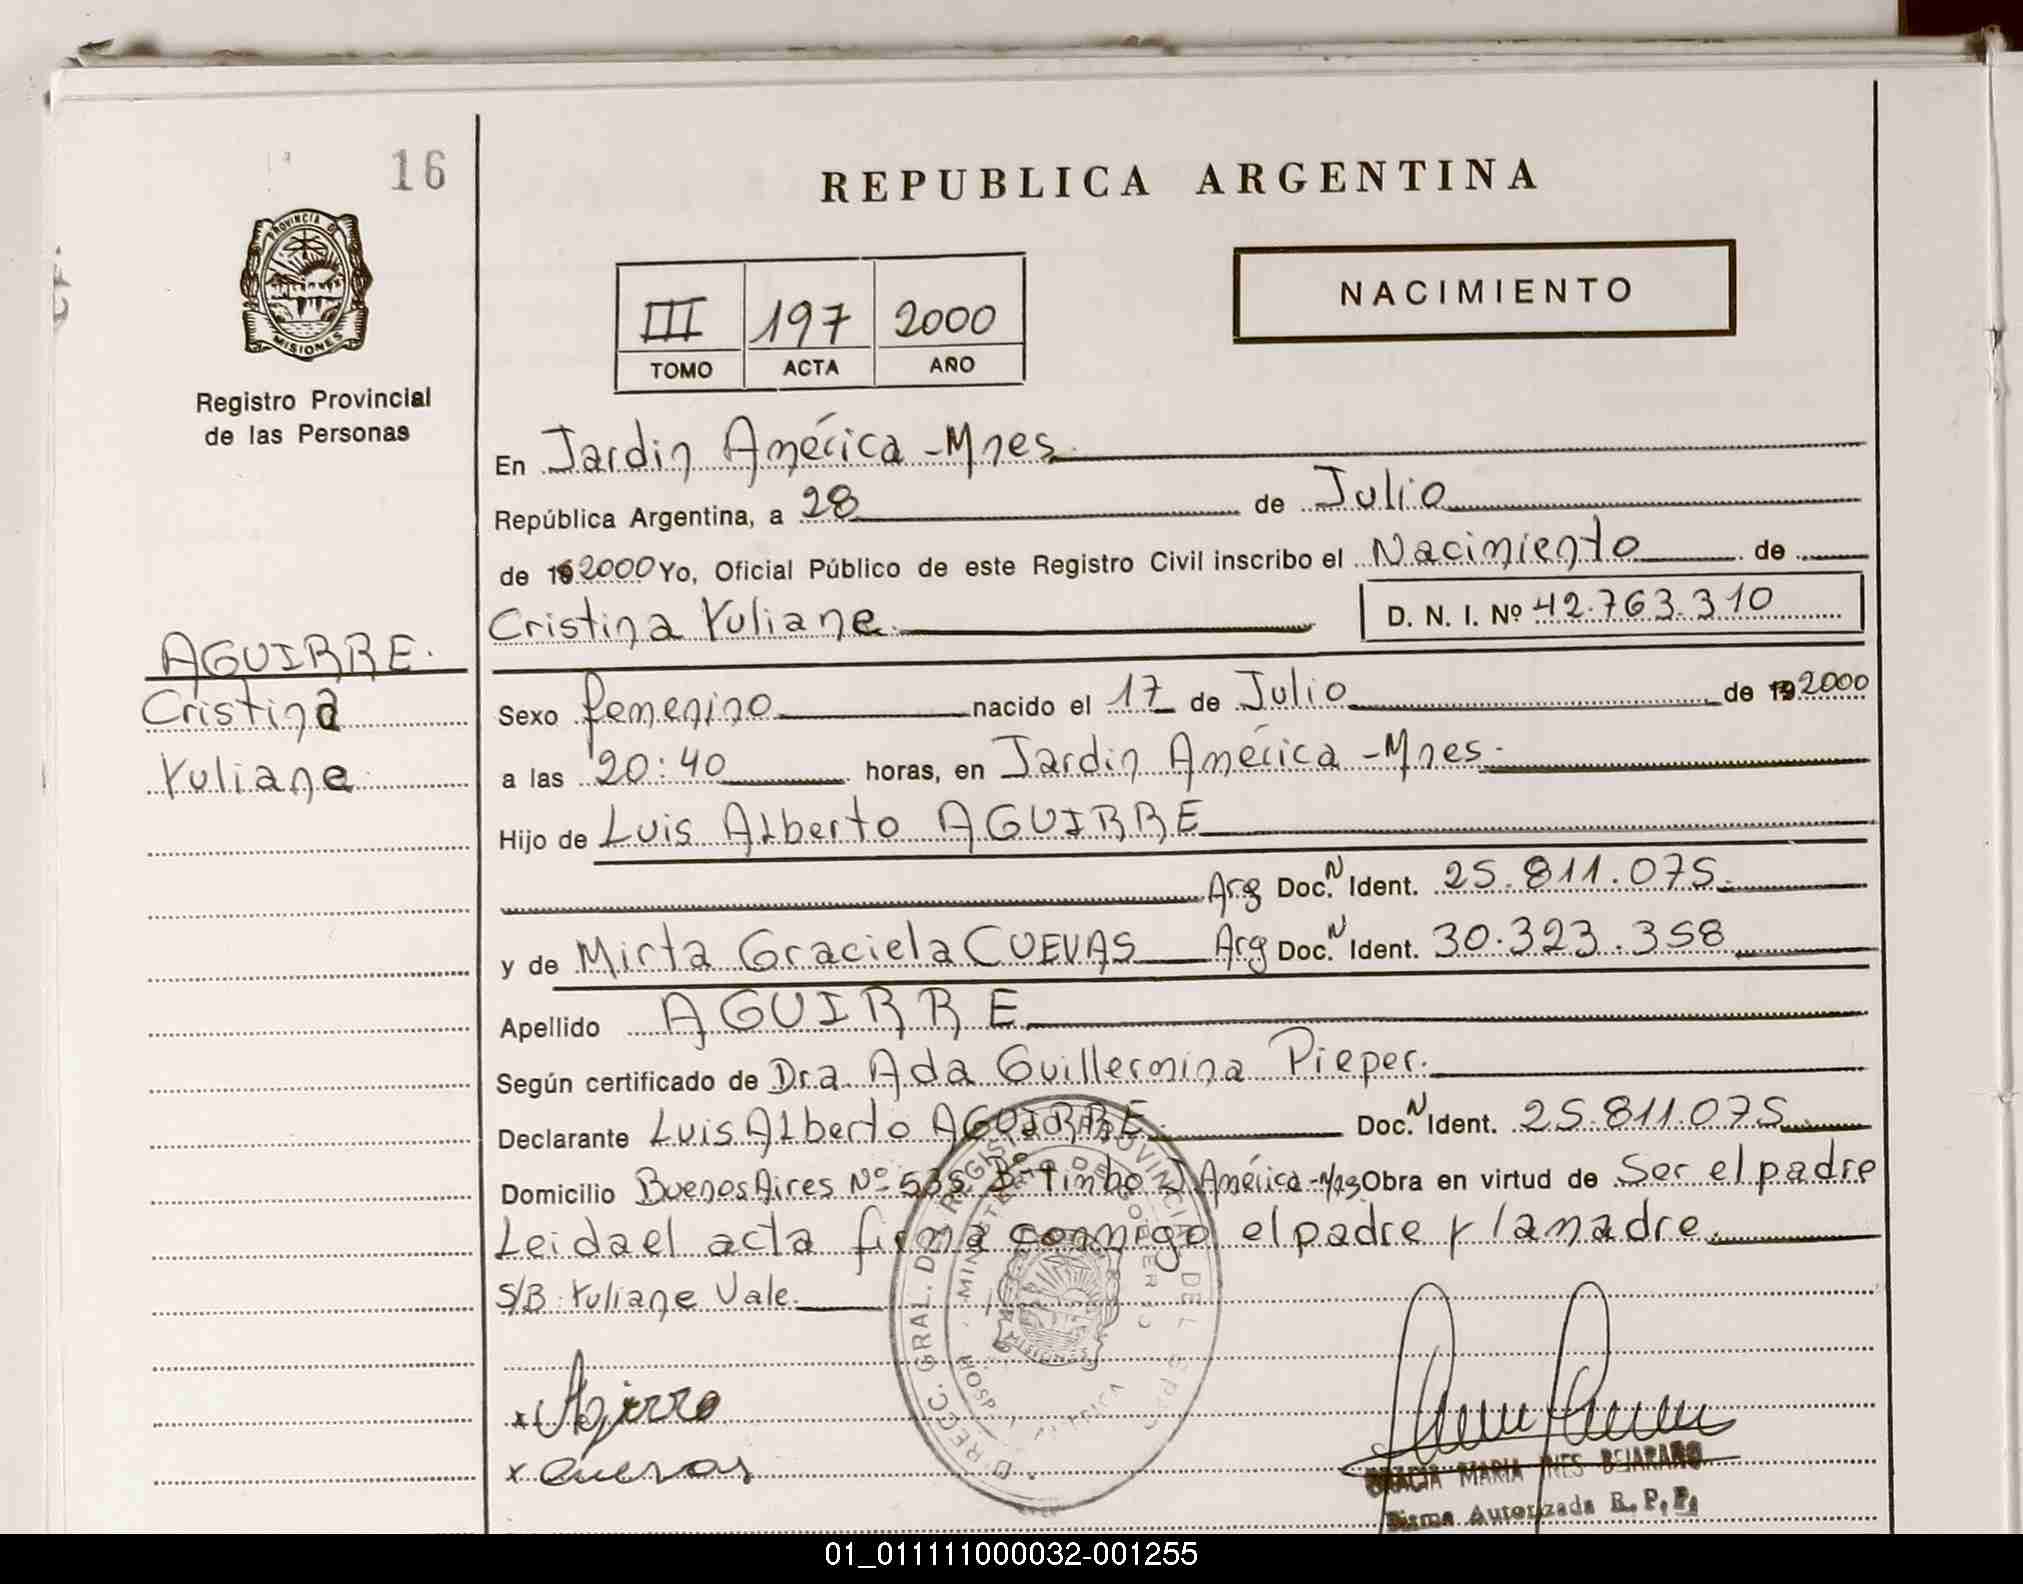 16
REPUBLICA ARGENTINA
PROVINCIA DE
MISIONES
Registro Provincial
de las Personas
III 197 2000
TOMO ACTA AÑO
NACIMIENTO
En Jardin América -Mnes.
República Argentina, a 28 de Julio
de 19 2000 Yo, Oficial Público de este Registro Civil inscribo el Nacimiento de
Cristina Yuliane. D. N. I. Nº 42.763.310
AGUIRRE.
Cristina
Yuliane
Sexo femenino nacido el 17 de Julio de 19 2000
a las 20:40 horas, en Jardin América -Mnes.
Hijo de Luis Alberto AGUIRRE
Arg Doc. N Ident. 25.811.075.
y de Mirta Graciela CUEVAS Arg Doc. N Ident. 30.323.358
Apellido AGUIRRE
Según certificado de Dra. Ada Guillermina Pieper.
Declarante Luis Alberto AGUIRRE. Doc. N Ident. 25.811.075
Domicilio Buenos Aires Nº 535 Bº Timbo J. América -Mnes Obra en virtud de Ser el padre
Leida el acta firma conmigo el padre y la madre.
S/B: Yuliane Vale.
x Agirre
x Cuevas
GRACIA MARIA INES BEJARANO
Firma Autorizada R. P. P.
01_011111000032-001255